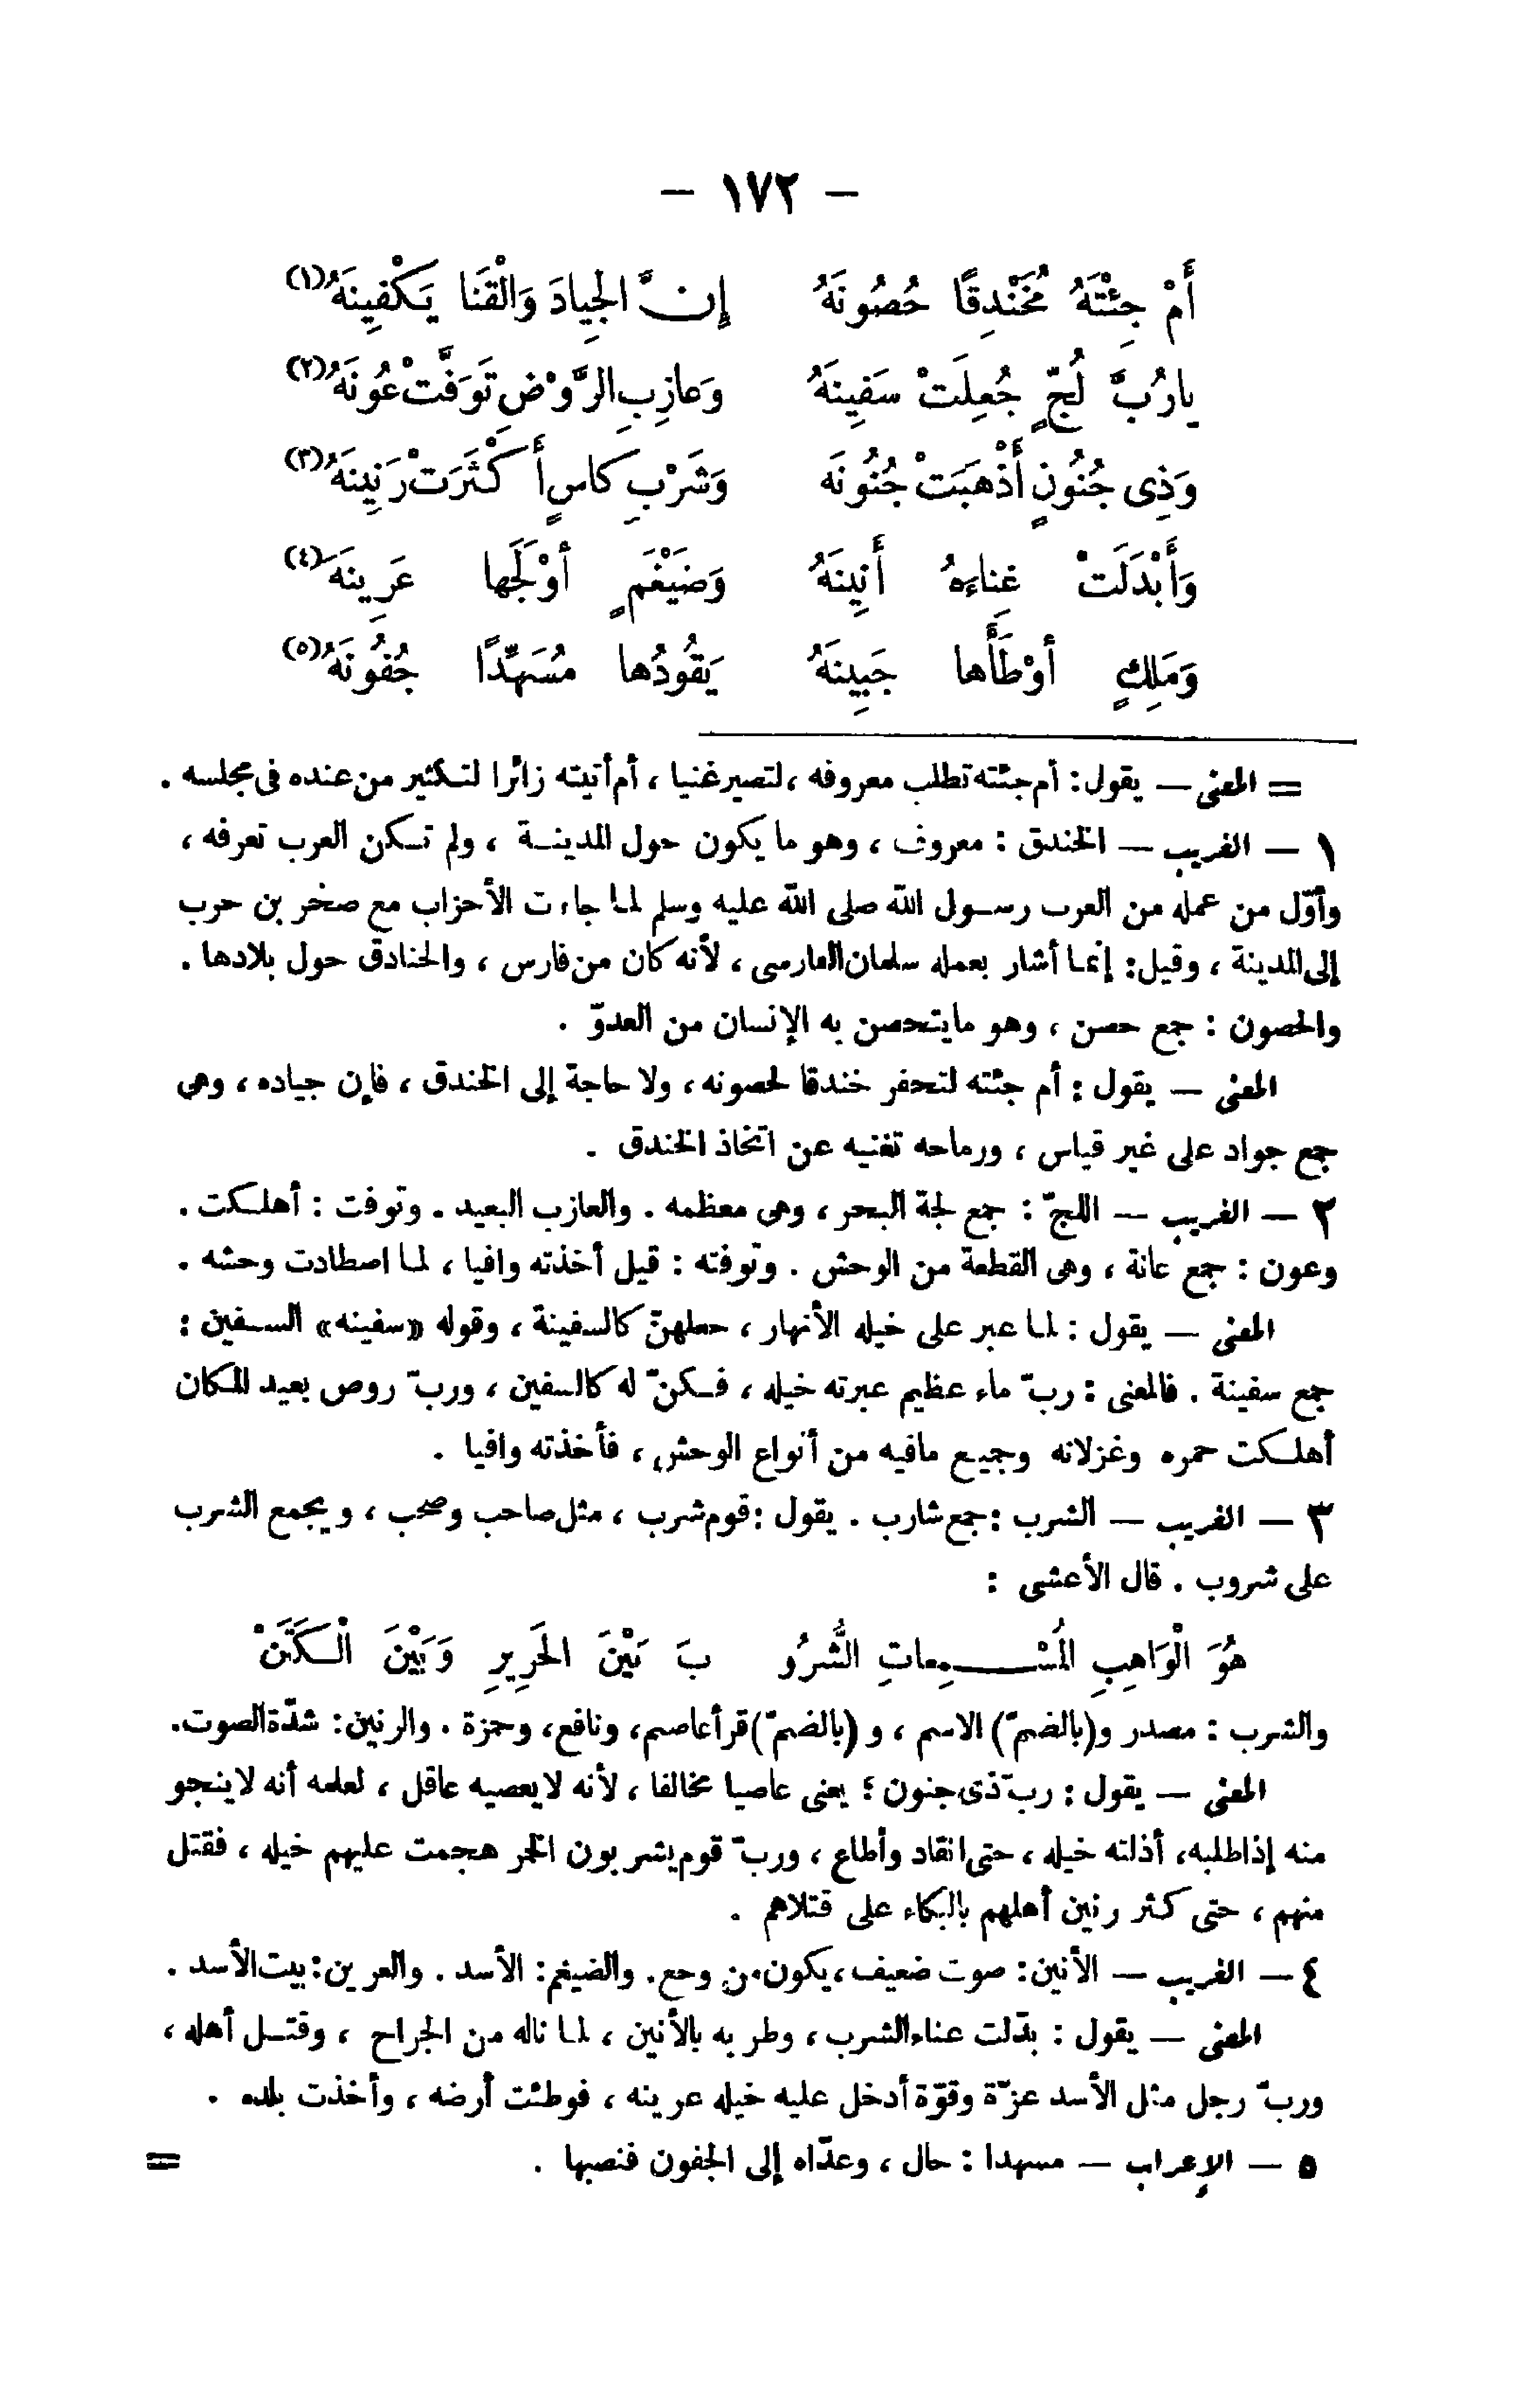 - ١٧٢ -
أَمْ جِئْتَهُ مُخَنْدِقًا حُصُونَهُ إِنَّ الْجِيادَ وَالْقَنَا يَكْفِينَهُ (١)
يارُبَّ لُجٍّ جُعِلَتْ سَفِينَهُ وَعازِبِ الرَّوْضِ تَوَفَّتْ عُونَهُ (٢)
وَذِى جُنُونٍ أَذْهَبَتْ جُنُونَه وَشَرْبِ كاسٍ أَكْثَرَتْ رَنِينَهُ (٣)
وَأَبْدَلَتْ غِناءَهُ أَنِينَهُ وَضَيْغَمٍ أَوْلَجَها عَرِينَهَ (٤)
وَمَلِكٍ أَوْطَأَها جَبِينَهُ يَقُودُها مُسَهِّدًا جُفُونَهُ (٥)
= المعنى — يقول: أم جئته تطلب معروفه، لتصير غنيا، أم أتيته زائرا لتكثير من عنده فى مجلسه .
١ — الغريب — الخندق : معروف ، وهو ما يكون حول المدينة ، ولم تكن العرب تعرفه ،
وأوّل من عمله من العرب رسول الله صلى الله عليه وسلم لما جاءت الأحزاب مع صخر بن حرب
إلى المدينة ، وقيل: إنما أشار بعمله سلمان الفارسى ، لأنه كان من فارس ، والخنادق حول بلادها .
والحصون : جمع حصن ، وهو ما يتحصن به الإنسان من العدوّ .
المعنى — يقول : أم جئته لتحفر خندقا لحصونه ، ولا حاجة إلى الخندق ، فإن جياده ، وهى
جمع جواد على غير قياس ، ورماحه تغنيه عن اتخاذ الخندق .
٢ — الغريب — اللجّ : جمع لجة البحر ، وهى معظمه . والعازب البعيد . وتوفت : أهلكت .
وعون : جمع عانة ، وهى القطعة من الوحش . وتوفته : قيل أخذته وافيا ، لما اصطادت وحشه .
المعنى — يقول : لما عبر على خيله الأنهار ، جعلهنّ كالسفينة ، وقوله «سفينه» السفين :
جمع سفينة . فالمعنى : ربّ ماء عظيم عبرته خيله ، فكنّ له كالسفين ، وربّ روض بعيد المكان
أهلكت حمره وغزلانه وجميع مافيه من أنواع الوحش ، فأخذته وافيا .
٣ — الغريب — الشرب : جمع شارب . يقول : قوم شرب ، مثل صاحب وصحب ، ويجمع الشرب
على شروب . قال الأعشى :
هُوَ الْوَاهِبِ المُسْمِعاتِ الشُّرُو بَ بَيْنَ الْحَرِيرِ وَبَيْنَ الْكَتَنْ
والشرب : مصدر و(بالضمّ) الاسم ، و (بالضمّ) قرأ عاصم، ونافع، وحمزة . والرنين: شدّة الصوت.
المعنى — يقول : ربّ ذى جنون ؛ يعنى عاصيا مخالفا ، لأنه لا يعصيه عاقل ، لعلمه أنه لا ينجو
منه إذا طلبه، أذلته خيله ، حتى انقاد وأطاع ، وربّ قوم يشربون الخمر هجمت عليهم خيله ، فقتل
منهم ، حتى كثر رنين أهلهم بالبكاء على قتلاهم .
٤ — الغريب — الأنين: صوت ضعيف ، يكون من وجع. والضيغم: الأسد . والعرين: بيت الأسد .
المعنى — يقول : بدّلت غناء الشرب ، وطربه بالأنين ، لما ناله من الجراح ، وقتل أهله ،
وربّ رجل مثل الأسد عزّة وقوّة أدخل عليه خيله عرينه ، فوطئت أرضه ، وأخذت بلده .
٥ — الإعراب — مسهدا : حال ، وعدّاه إلى الجفون فنصبها . =